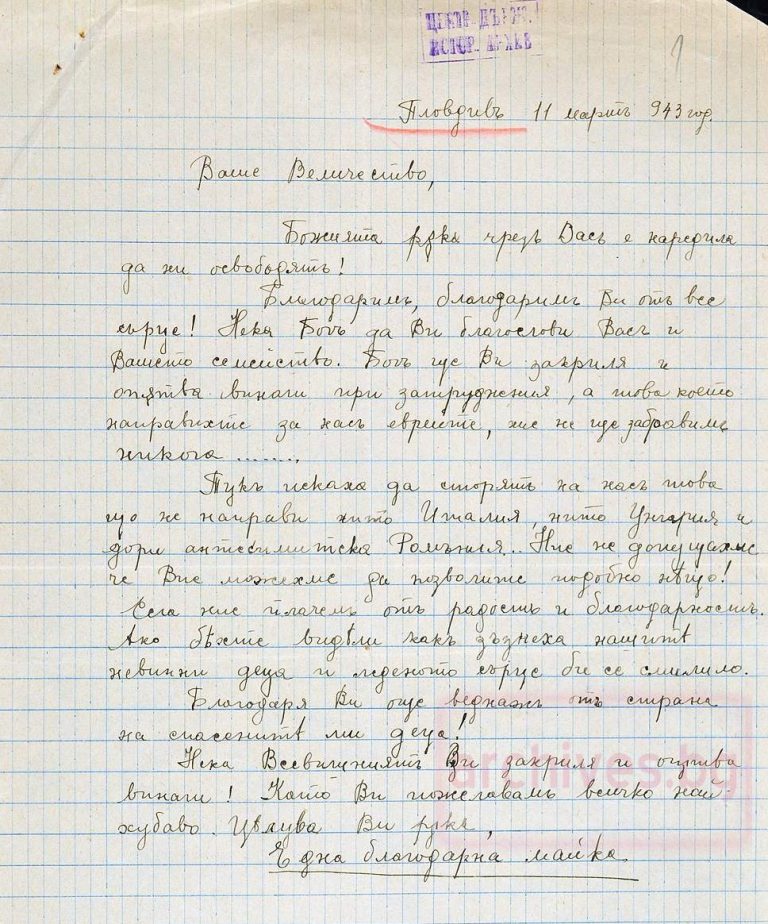 ЦЕНТР. ДЪРЖ.
ИСТОР. АРХИВ
1
Пловдивъ 11 мартъ 943 год.
Ваше Величество,
Божията рѫка чрезъ Васъ е наредила
да ни освободятъ!
Благодаримъ, благодаримъ Ви отъ все
сърце! Нека Богъ да Ви благослови Васъ и
Вашето семейство. Богъ ще Ви закриля и
опѫтва винаги при затруднения, а това което
направихте за насъ евреите, ние не ще забравимъ
никога .......,
Тукъ искаха да сторятъ на насъ това
що не направи нито Италия, нито Унгария и
дори антесимитска Ромъния.. Ние не допущахме
че Вие можехме да позволите подобно нѣщо!
Сега ние плачемъ отъ радость и благодарность.
Ако бѣхте видѣли какъ зъзнеха нашитѣ
невинни деца и леденото сърце би се смилило.
Благодаря Ви още веднажъ отъ страна
на спасенитѣ ми деца!
Нека Всевишниятъ Ви закриля и опѫтва
винаги! Като Ви пожелавамъ всичко най-
хубаво. Цѣлува Ви рѫка,
Една благодарна майка.
archives.bg